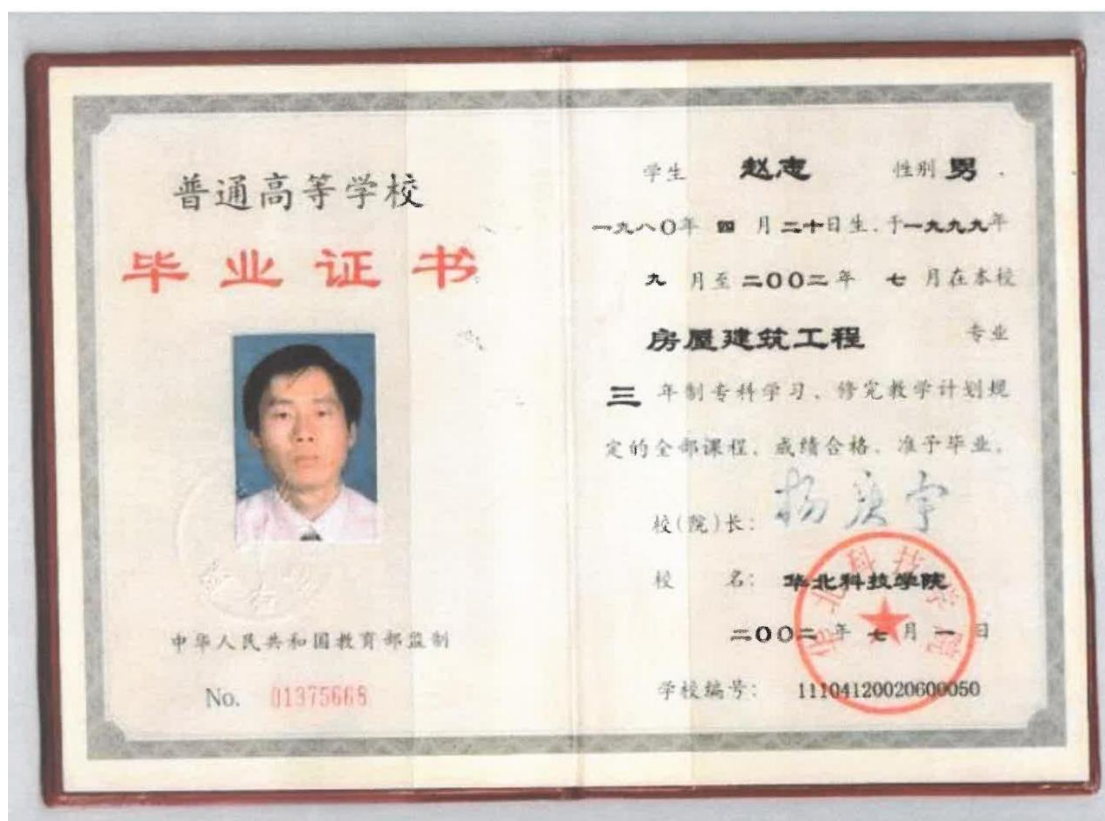 普通高等学校
毕业证书
中华人民共和国教育部监制
No. 01375668
学生 赵志 性别 男 ,
一九八〇年 四 月 二十日生,于一九九九年
九 月至 二〇〇二年 七 月在本校
房屋建筑工程 专业
三 年制专科学习、修完教学计划规
定的全部课程、成绩合格、准予毕业。
校(院)长: 杨庚宇
校 名: 华北科技学院
二〇〇二年 七 月 一 日
学校编号: 11104120020600050
华北科技学院